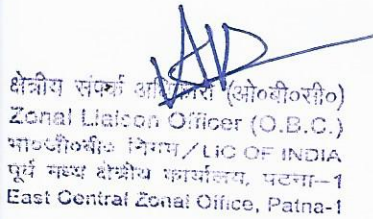 क्षेत्रीय संपर्क अधिकारी (ओ०बी०सी०)
Zonal Liaison Officer (O.B.C.)
भा०जी०बी० निगम/LIC OF INDIA
पूर्व मध्य क्षेत्रीय कार्यालय, पटना-1
East Central Zonal Office, Patna-1